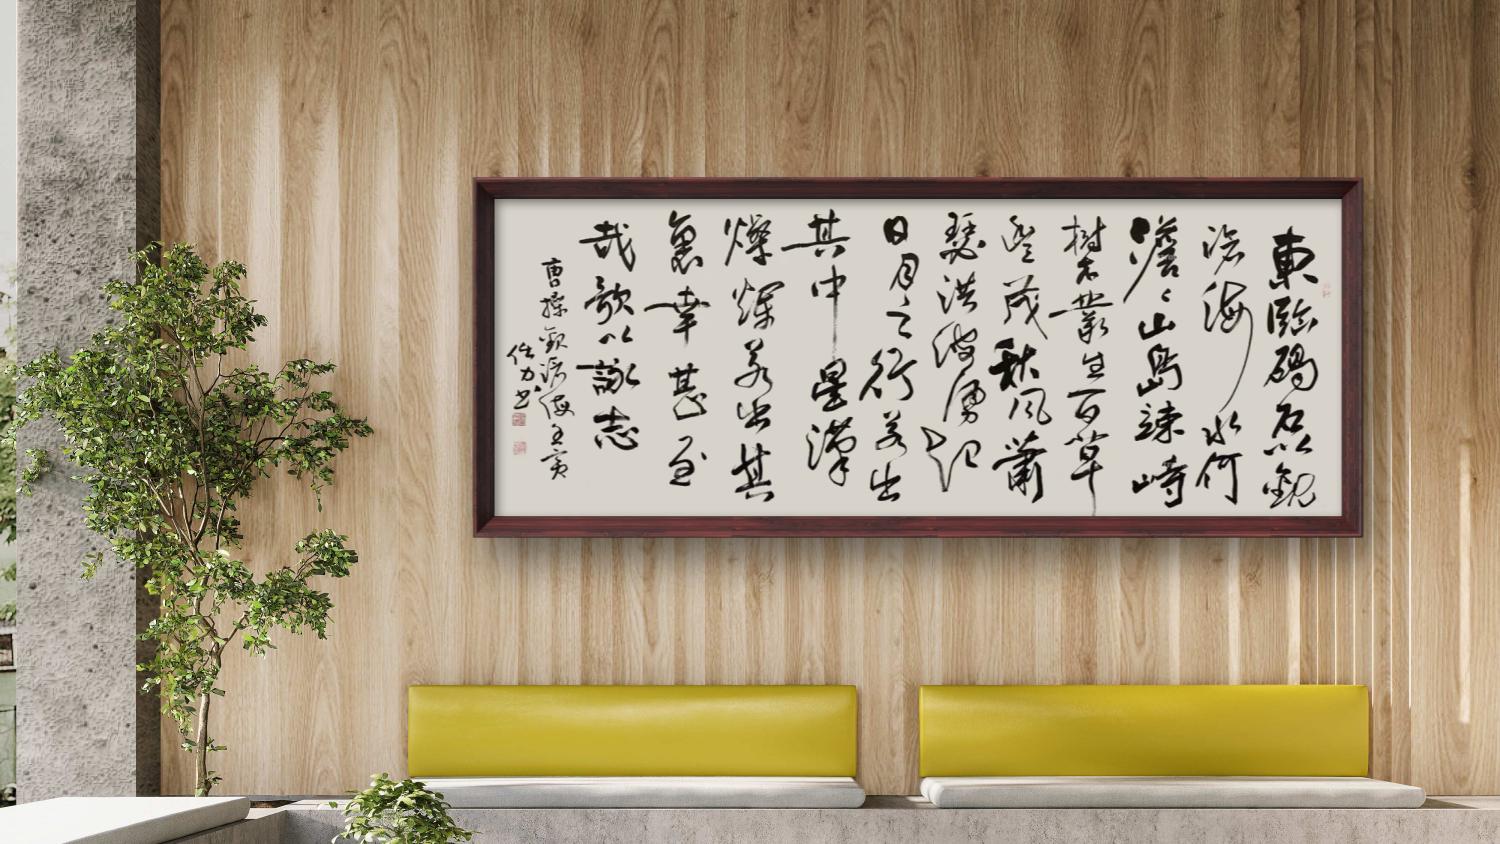 東臨碣石以觀
滄海水何
澹々山島竦峙
樹木叢生百草
豐茂秋風蕭
瑟洪波湧起
日月之行若出
其中星漢
燦爛若出其
裏幸甚至
哉歌以詠志
曹操觀滄海壬寅
力书